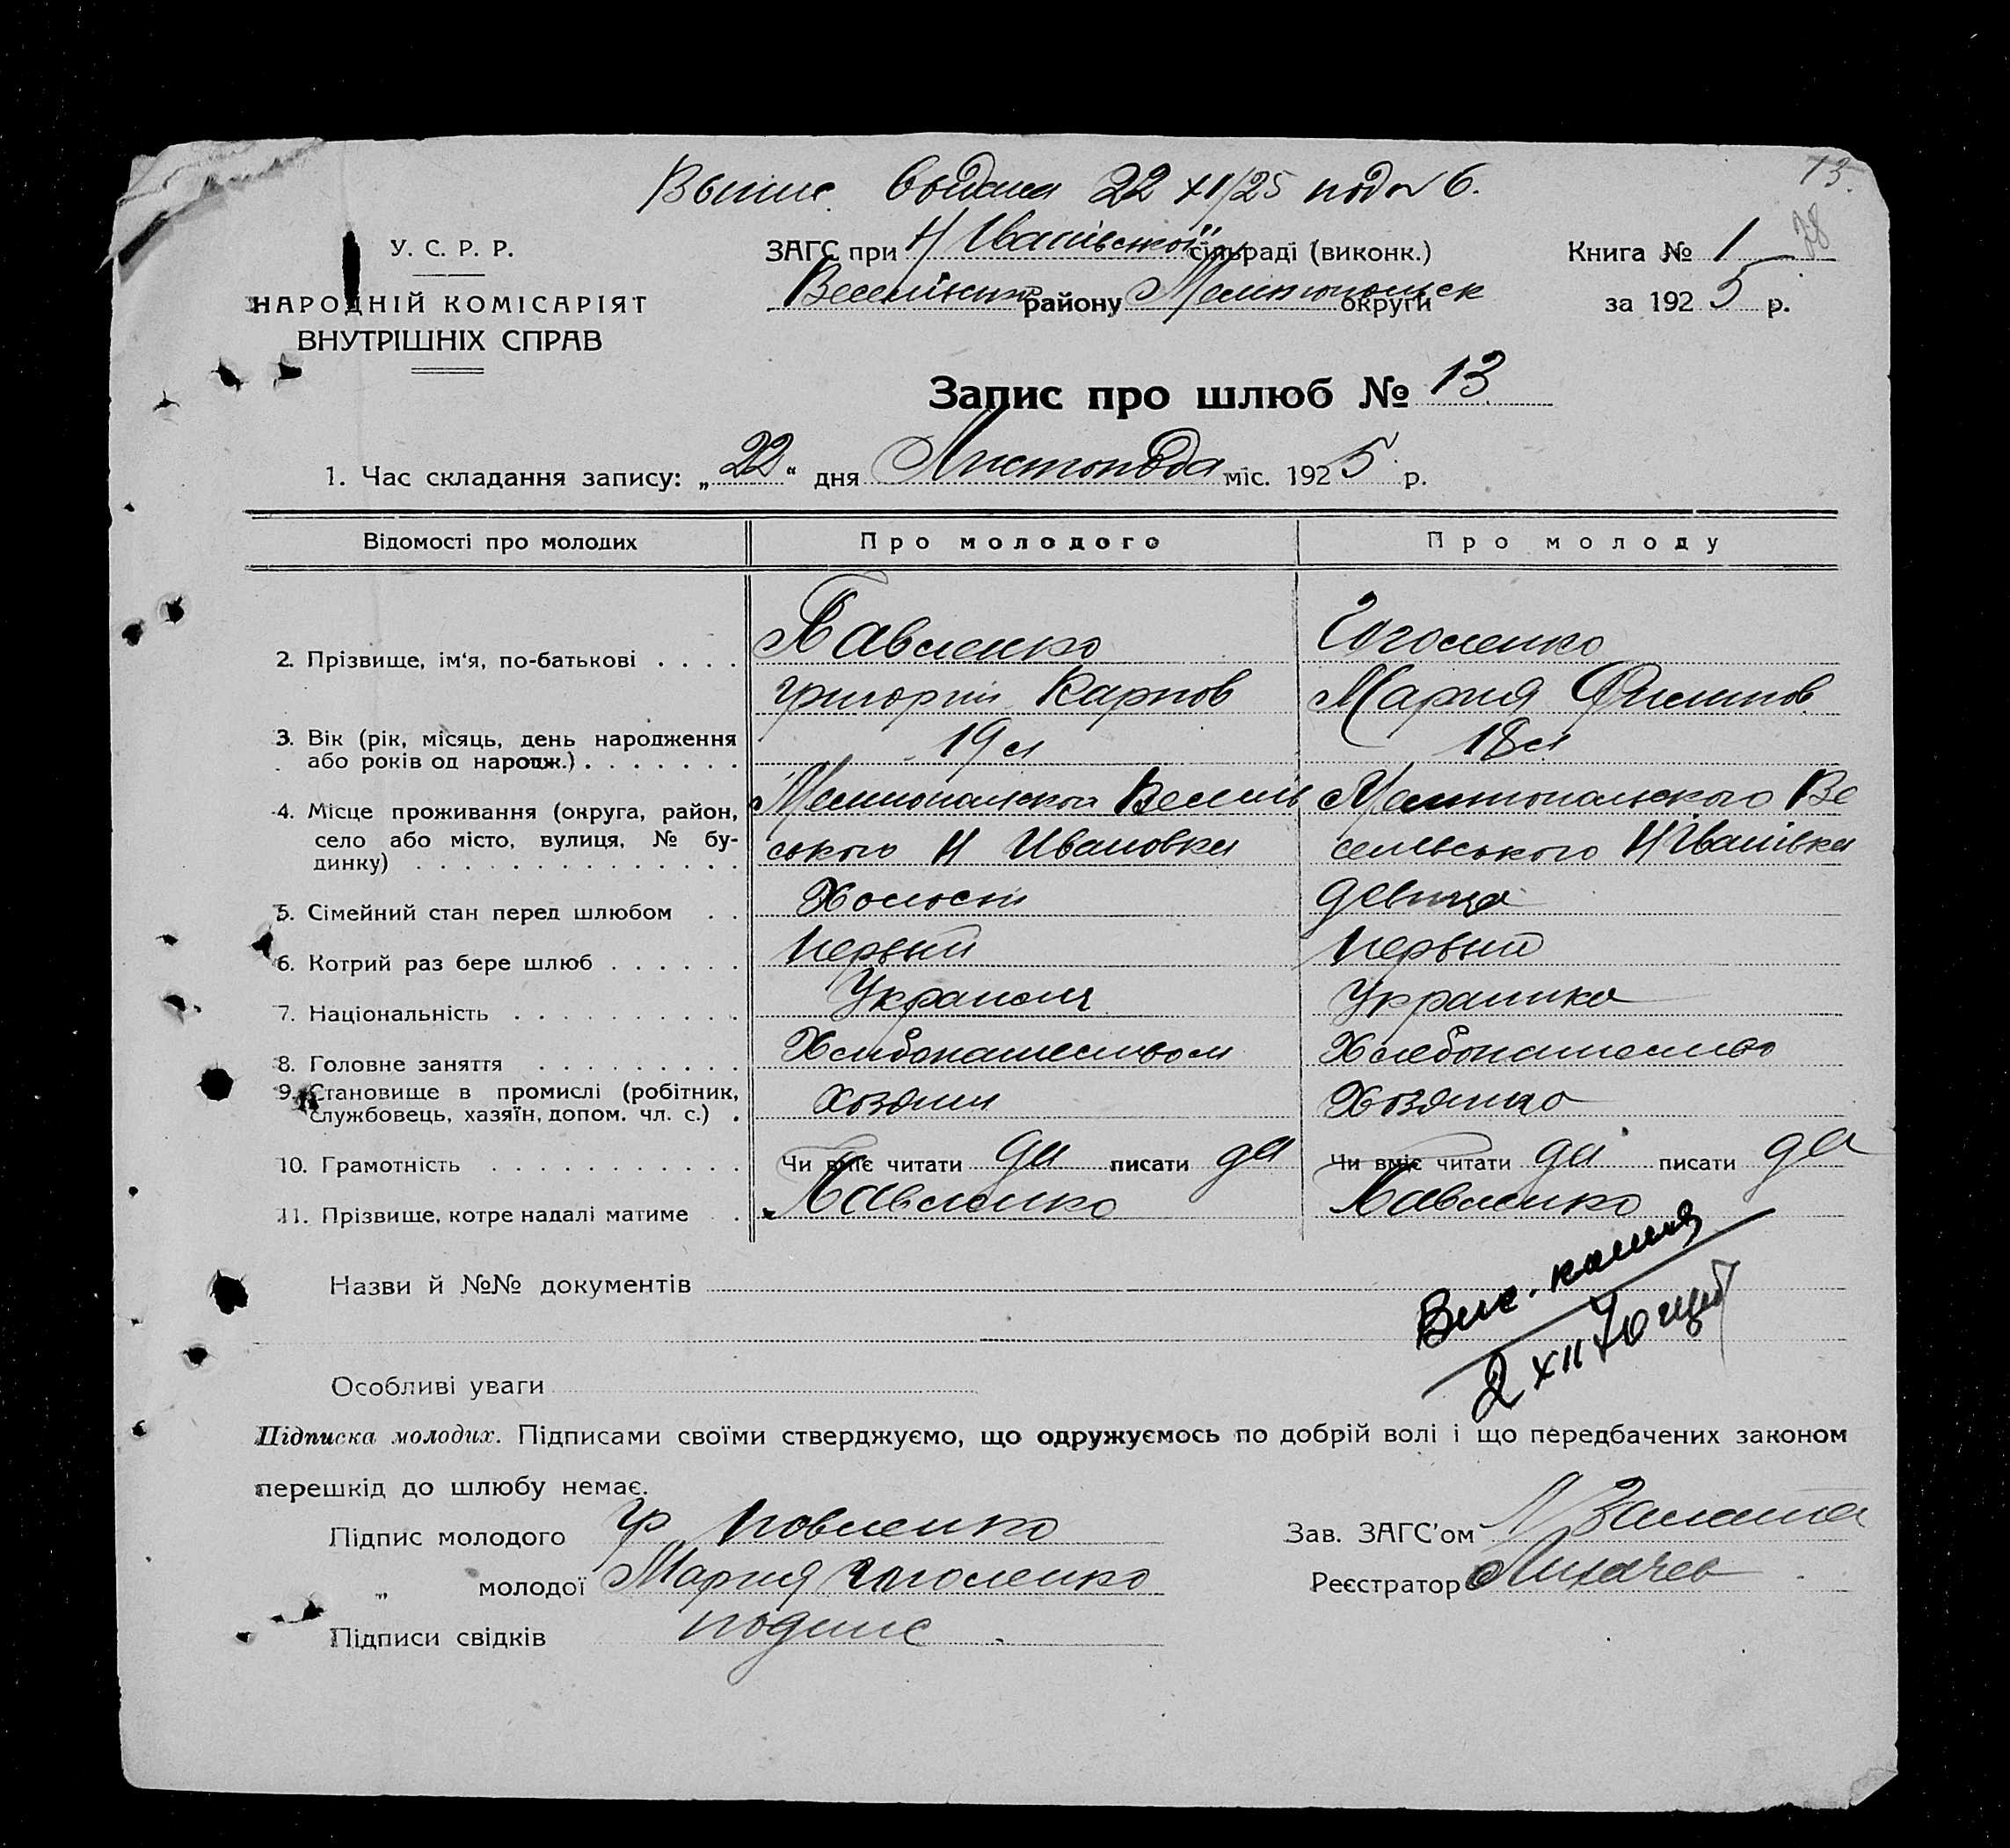 Выпис. выдана 22 XI/25 под № 6.
13.
28
У. С. Р. Р.
НАРОДНІЙ КОМІСАРІЯТ
ВНУТРІШНІХ СПРАВ
ЗАГС при Н Іванівської сільраді (виконк.)
Веселівськ району Мелітопольськ округи
Книга № 1
за 1925 р.
Запис про шлюб № 13
1. Час складання запису: „22“ дня Листопада міс. 1925 р.
Відомості про молодих Про молодого Про молоду
2. Прізвище, ім'я, по-батькові . . . . Павленко Гоголенко
Григорий Карпов Мария Филипов
3. Вік (рік, місяць, день народження
або років од народж.) . . . . . . . 19 л 18 л
4. Місце проживання (округа, район, Мелитопольской Веселів Мелитопольского Ве
село або місто, вулиця, № бу- ського Н Ивановка селівського Н Іванівка
динку) . . . . . . . . . . . . . .
5. Сімейний стан перед шлюбом . . Холост девица
6. Котрий раз бере шлюб . . . . . . Первый Первый
7. Національність . . . . . . . . . . Украинец Украинка
8. Головне заняття . . . . . . . . . Хлибопашеством Хлебопашество
9. Становище в промислі (робітник,
службовець, хазяїн, допом. чл. с.) . Хозяин Хозяйка
10. Грамотність . . . . . . . . . . . Чи вміє читати да писати да Чи вміє читати да писати да
11. Прізвище, котре надалі матиме . Павленко Павленко
Назви й №№ документів
2 XII 70
Особливі уваги
Підписка молодих. Підписами своїми стверджуємо, що одружуємось по добрій волі і що передбачених законом
перешкід до шлюбу немає.
Підпис молодого Гр Повленко
„ молодої Мария Гоголенко
Підписи свідків подпис
Зав. ЗАГС'ом
Реєстратор Лихачев